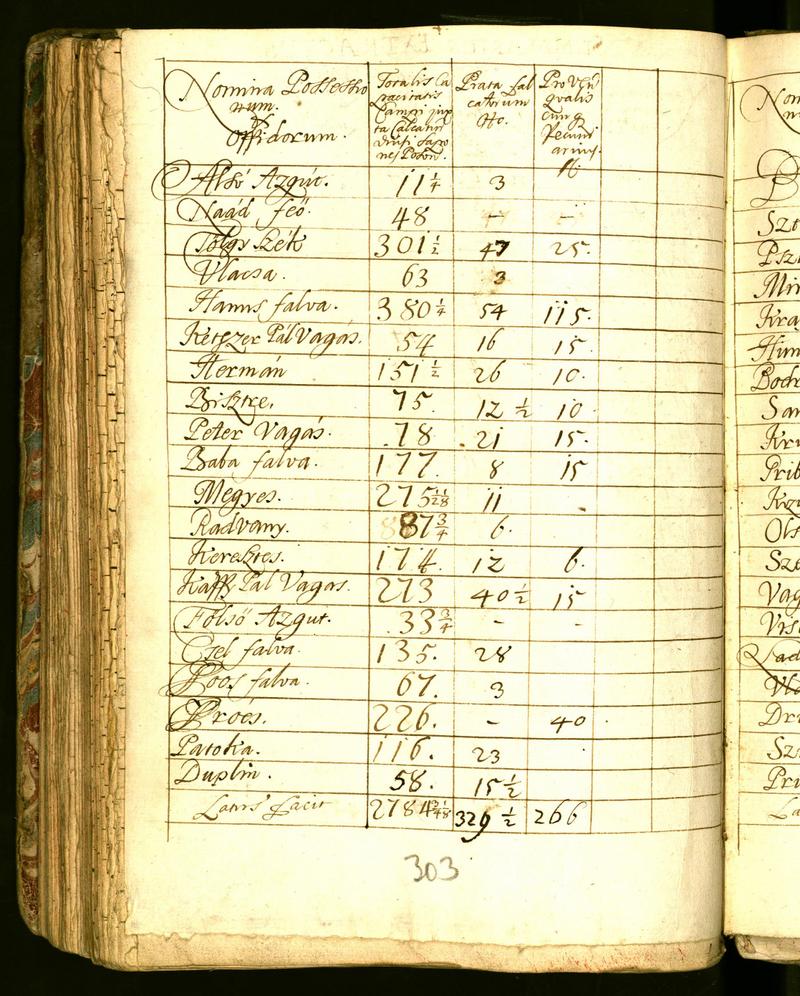 Nomina Possessio
num.
&
Oppidorum.
Totalis Ca
pacitatis
Campi jux
ta
nes Poson.
Prata fal
catorum
No.
Proven
qualis
cunq
Pecuni
arius.
ft
Alsó Azgút. 11 1/4 3
Naád feő. 48 - -
Tölgy Szék 301 1/2 47 25.
Vlacsa. 63 3
Hanus falva. 380 1/4 54 115.
Ketzer Pál Vagás. 54 16 15.
Hermán 151 1/2 26 10.
Bisztre. 75. 12 1/2 10
Peter Vagás. 78 21 15.
Baba falva. 177. 8 15
Megyes. 275 11/28 11
Radvany. 87 3/4 6.
Keresztes. 174. 12 6.
Kapp Pal Vagas. 273 40 1/2 15
Fölső Azgut. 33 3/4 - -
Csel falva. 135. 28
Roos falva. 67. 3
Próes. 226. - 40
Patoka. 116. 23
Duplin. 58. 15 1/2
Latus facit 2784 329 1/2 266
303
Non
B
Szt
Psz
Mir
Kra
Hun
Bodr
Sar
Kri
Prib
Koz
Ols
Sze
Vag
Vrs
Lad
Vla
Dri
Sz
Pri
La